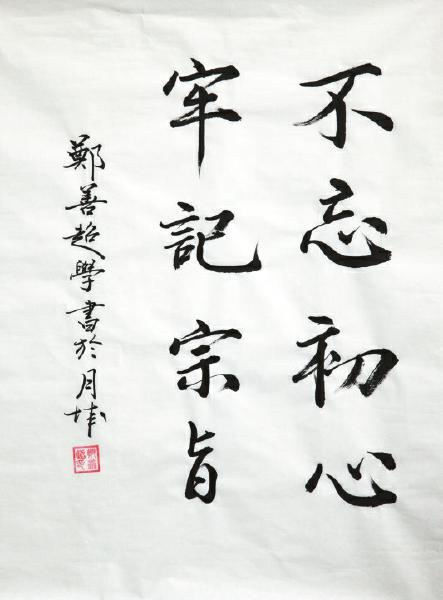 不忘初心
牢記宗旨
鄭善超學書於月城